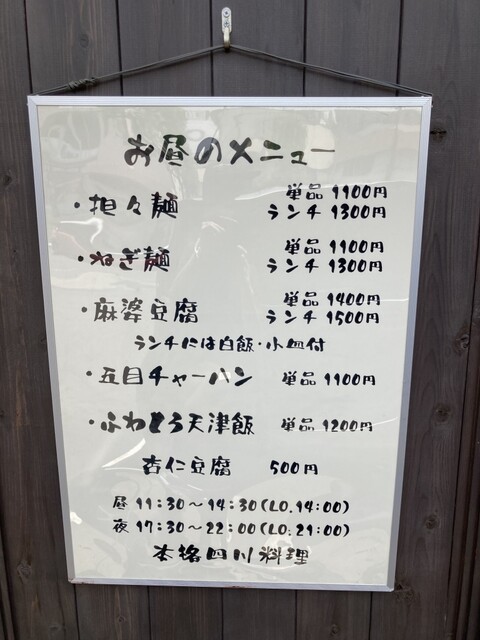 お昼のメニュー
・担々麺 単品 1100円
ランチ 1300円
・ねぎ麺 単品 1100円
ランチ 1300円
・麻婆豆腐 単品 1400円
ランチ 1500円
ランチには白飯・小皿付
・五目チャーハン 単品 1100円
・ふわとろ天津飯 単品 1200円
杏仁豆腐 500円
昼 11:30～14:30(LO.14:00)
夜 17:30～22:00(LO.21:00)
本格四川料理